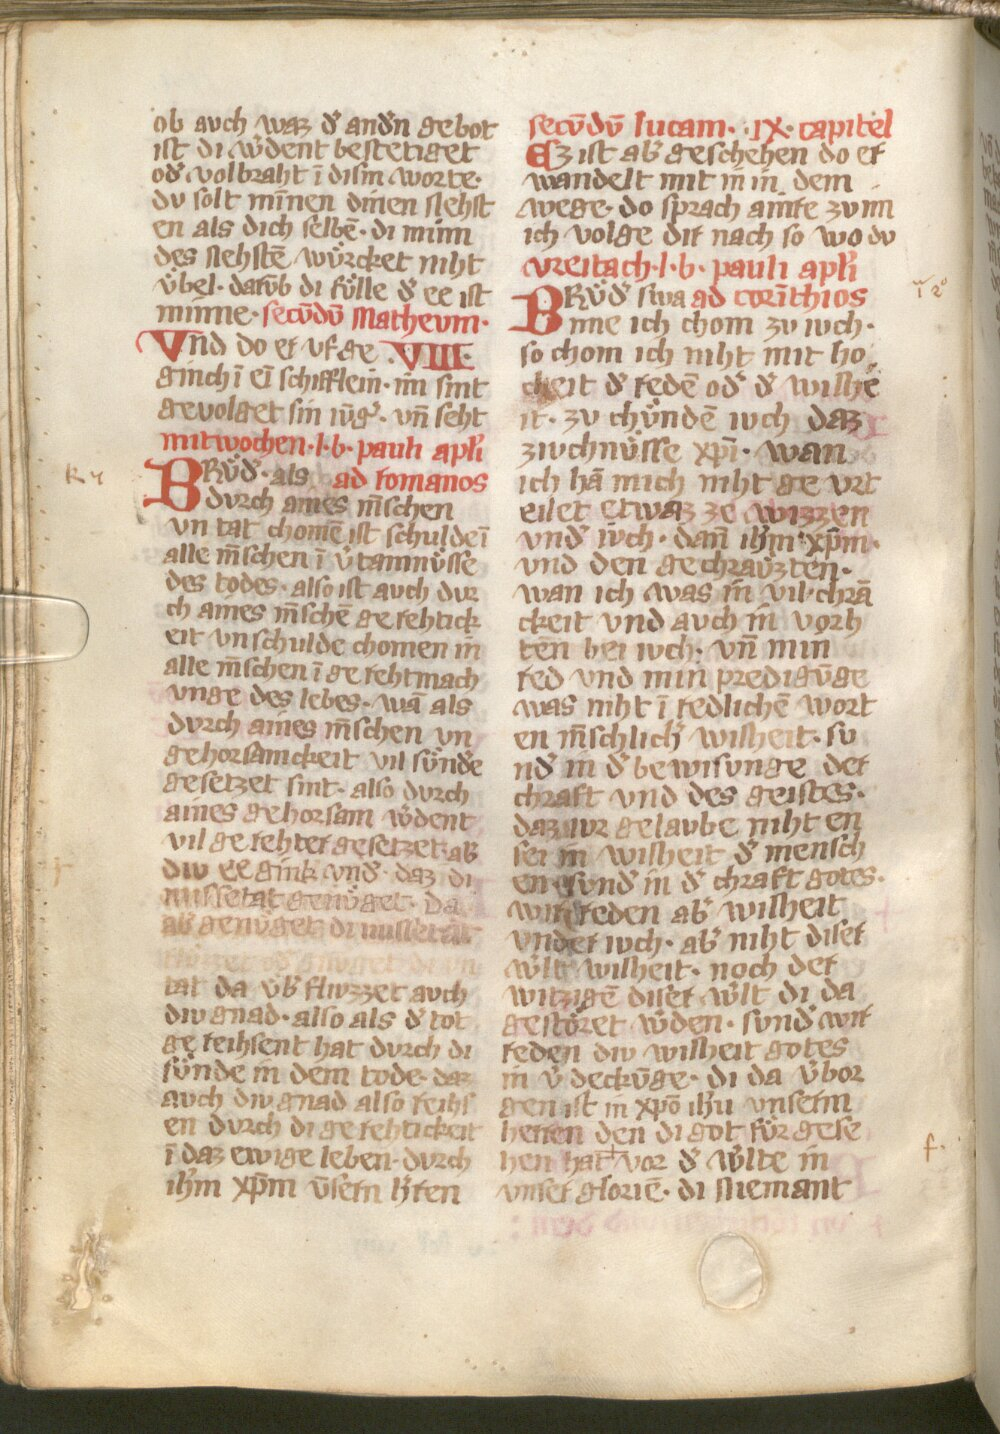 ob auch waz d͛ and͛n gebot
ist di w͛dent bestetiget
od͛ volbraht ī dism worte·
du solt minnen dinen nehst
en als dich selbē· di minn
des nehstē wuͤrcket niht
uͤbel· darūb di fuͤlle d͛ ee ist
minne· secūdū Matheum·
Und do er ufge ·VIII·
ginch ī eī schifflein· im sint
gevolget sin iūg͛· uñ seht
mitwochen·l·b· pauli apl̄i
BRuͤd͛· als ad romanos
durch aines m̄schen
un tat chomē ist schulde ī
alle m̄schen ī v͛tamnuͤsse
des todes· also ist auch dur
ch aines m̄schē gerehtick
eit unschulde chomen in
alle m̄schen ī gerehtmach
unge des lebēs· wā als
durch aines m̄schen un
gehorsamckeit vil suͤnd͛e
gesetzet sint· also durch
aines gehorsam w͛dent
vil gerehter gesetzet· ab͛
div ee gink und͛· daz di
missetat genuͤget· da
ab͛ genuͤget di missetat
tat da ub͛ fliuzzet auch
div gnad· also als d͛ tot
gereihsent hat durch di
suͤnde in dem tode· daz
auch div gnad also reihs
en durch di gerehtickeit
ī daz ewige leben· durch
ih̄m xp̄m ūsern h͛ren
secūdū lucam· ·IX· capitel
Ez ist ab͛ geschehen do er
wandelt mit in in dem
wege· do sprach ainre zu im
ich volge dir nach so wo du
vreitach·l·b· pauli apl̄i
BRuͤd͛ swa ad corīthios
inne ich chom zu iuch·
so chom ich niht mit ho
cheit d͛ redē od͛ d͛ wishē
it· zu chuͤndē iuch daz
ziuchnuͤsse xp̄i· wan
ich hā mich niht geurt
eilet etwaz ze wizzen
und͛ iuch· dañ ih̄m xp̄m·
und den gechraūzten·
wan ich was in vil chrā
ckeit und auch in vorh
ten bei iuch· uñ min
red und min predigūge
was niht ī redlichē wort
en m̄schlich͛ wisheit· su
nd͛ in d͛ bewisunge der
chraft und des geistes·
daz iur gelaube niht en
sei in wisheit d͛ mensch
en sund͛ in d͛ chraft gotes·
wir reden ab͛ wisheit
under iuch· ab͛ niht diser
w͛lt wisheit· noch der
witzigē diser w͛lt di da
gestoͤret w͛den· sund͛ wir
reden div wisheit gotes
in v͛deckūge· di da v͛bor
gen ist in xp̄o ih̄u unserm
herren den di got fuͤr gese
hen hat vor d͛ w͛lte in
unser gloriē· di niemant